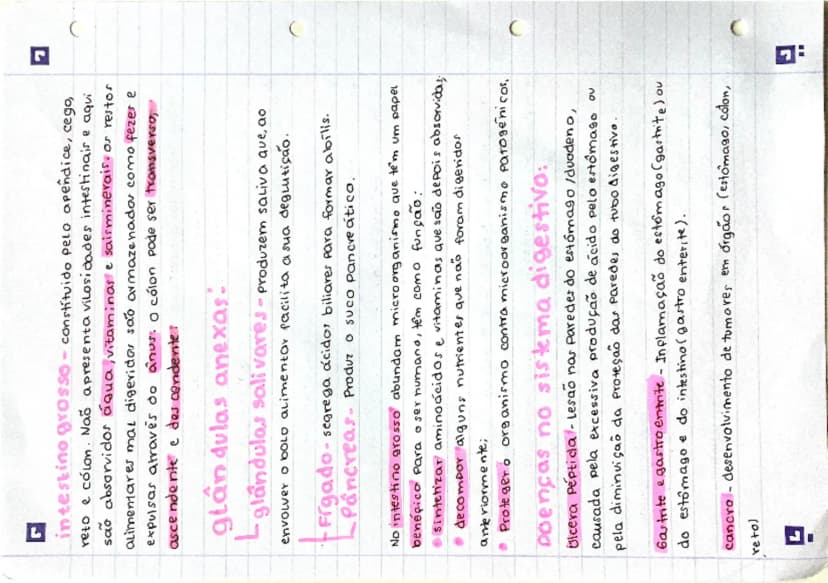 intestino grosso - constituído pelo apêndice, cego,
reto e cólon. Naõ apresenta vilosidades intestinais e aqui
são absorvidos água, vitaminas e sais minerais. os restos
alimentares mal digeridos são armazenados como fezes e
expulsas através do ânus. O cólon pode ser transverso,
ascendente e descendente!
glândulas anexas:
glândulas salivares - Produzem saliva que, ao
envolver o bolo alimentar facilita a sua deglutição.
Fígado - segrega ácidos biliares para formar a bílis.
Pâncreas - Produz o suco pancreático.
No intestino grosso abundam microorganismo que têm um papel
benéfico para o ser humano, têm como função:
sintetizar aminoácidos e vitaminas que são depois absorvidas;
decompor alguns nutrientes que naõ foram digeridos
anteriormente;
Proteger o organismo contra microorganismo patogénicos.
Doenças no sistema digestivo:
Úlcera Péptida - Lesão nas paredes do estômago/duodeno,
causada pela excessiva produção de ácido pelo estômago ou
pela diminuição da proteção das paredes do tubo digestivo.
Gastrite e gastroentrite - Inflamação do estômago (gastrite) ou
do estômago e do intestino (gastro enterite).
cancro - desenvolvimento de tumores em órgãos (estômago, cólon,
reto)